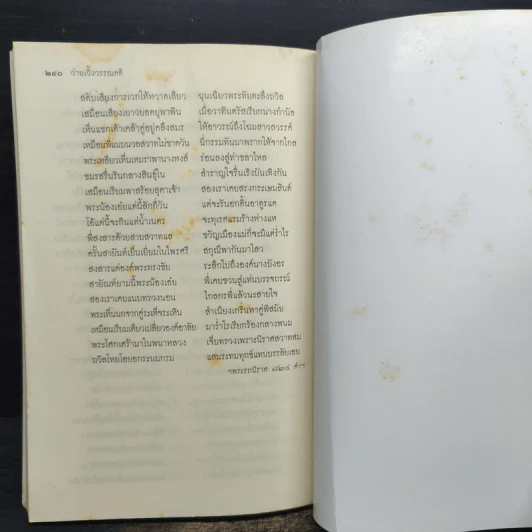 ๒๔๐ ว่ายเวิ้งวรรณคดี
สดับเสียงการเวกให้หวาดเสียว ฉุนเฉียวพระทัยตะลึงถวิล
เสมือนเสียงเยาวยอดยุพาพิน เมื่อวาทินตรัสเรียกนางกำนัล
เห็นแขกเต้าเคล้าคู่อยู่คลึงสมร ให้อาวรณ์ถึงโฉมสาวสวรรค์
เหมือนพี่แนบนวลสวาทไม่ขาดวัน นี่กรรมทันมาพรากให้จากไกล
พระเหลียวเห็นเหมราพานางหงส์ ร่อนลงสู่ท่าชลาไหล
ชมรสรื่นรินกลางสินธุ์ใน สำราญใจรื่นเริงบันเทิงกัน
เสมือนเรียมพาสร้อยสุดาเจ้า สองเราเคยสรงกระเษมสันต์
พระน้องเอ๋ยแต่นี้สักกี่วัน แต่จะรันอกดิ้นอาดูรแด
โอ้แต่นี้จะกินแต่น้ำเนตร จะทุเรศแรมร้างห่างแห
พี่สงสารด้วยสายสวาทแล ขวัญเมืองแม่ก็จะมีแต่ร่ำไร
ครั้นสายัณห์เย็นเยียบในไพรศรี สกุณีพากันมาไสว
สงสารแต่องค์พระทรงชัย ระลึกไปถึงองค์นางบังอร
สายัณห์ยามนี้พระน้องเอ๋ย พี่เคยชวนสู่แท่นบรรจถรณ์
สองเราเคยแนบทรวงนอน ไกลกรพี่แล้วนะสายใจ
พระเห็นนกจากคู่ระเหี่จระเหิน สำเนียงเกริ่นหาคู่พิสมัย
เหมือนเรียมเดียวเปลี่ยวองค์อาลัย มาร่ำไรเรียกร้องกลางพนม
พระโศกเศร้ามาในพนาหลวง เจ็บทรวงเพราะนิราศสวาทสม
ถวิลโหยโอยอกระบมกรม แสนระทมทุกข์แทบบรรลัยเอย
ฯพระรถนิราศ ๔๒๔ คำฯ